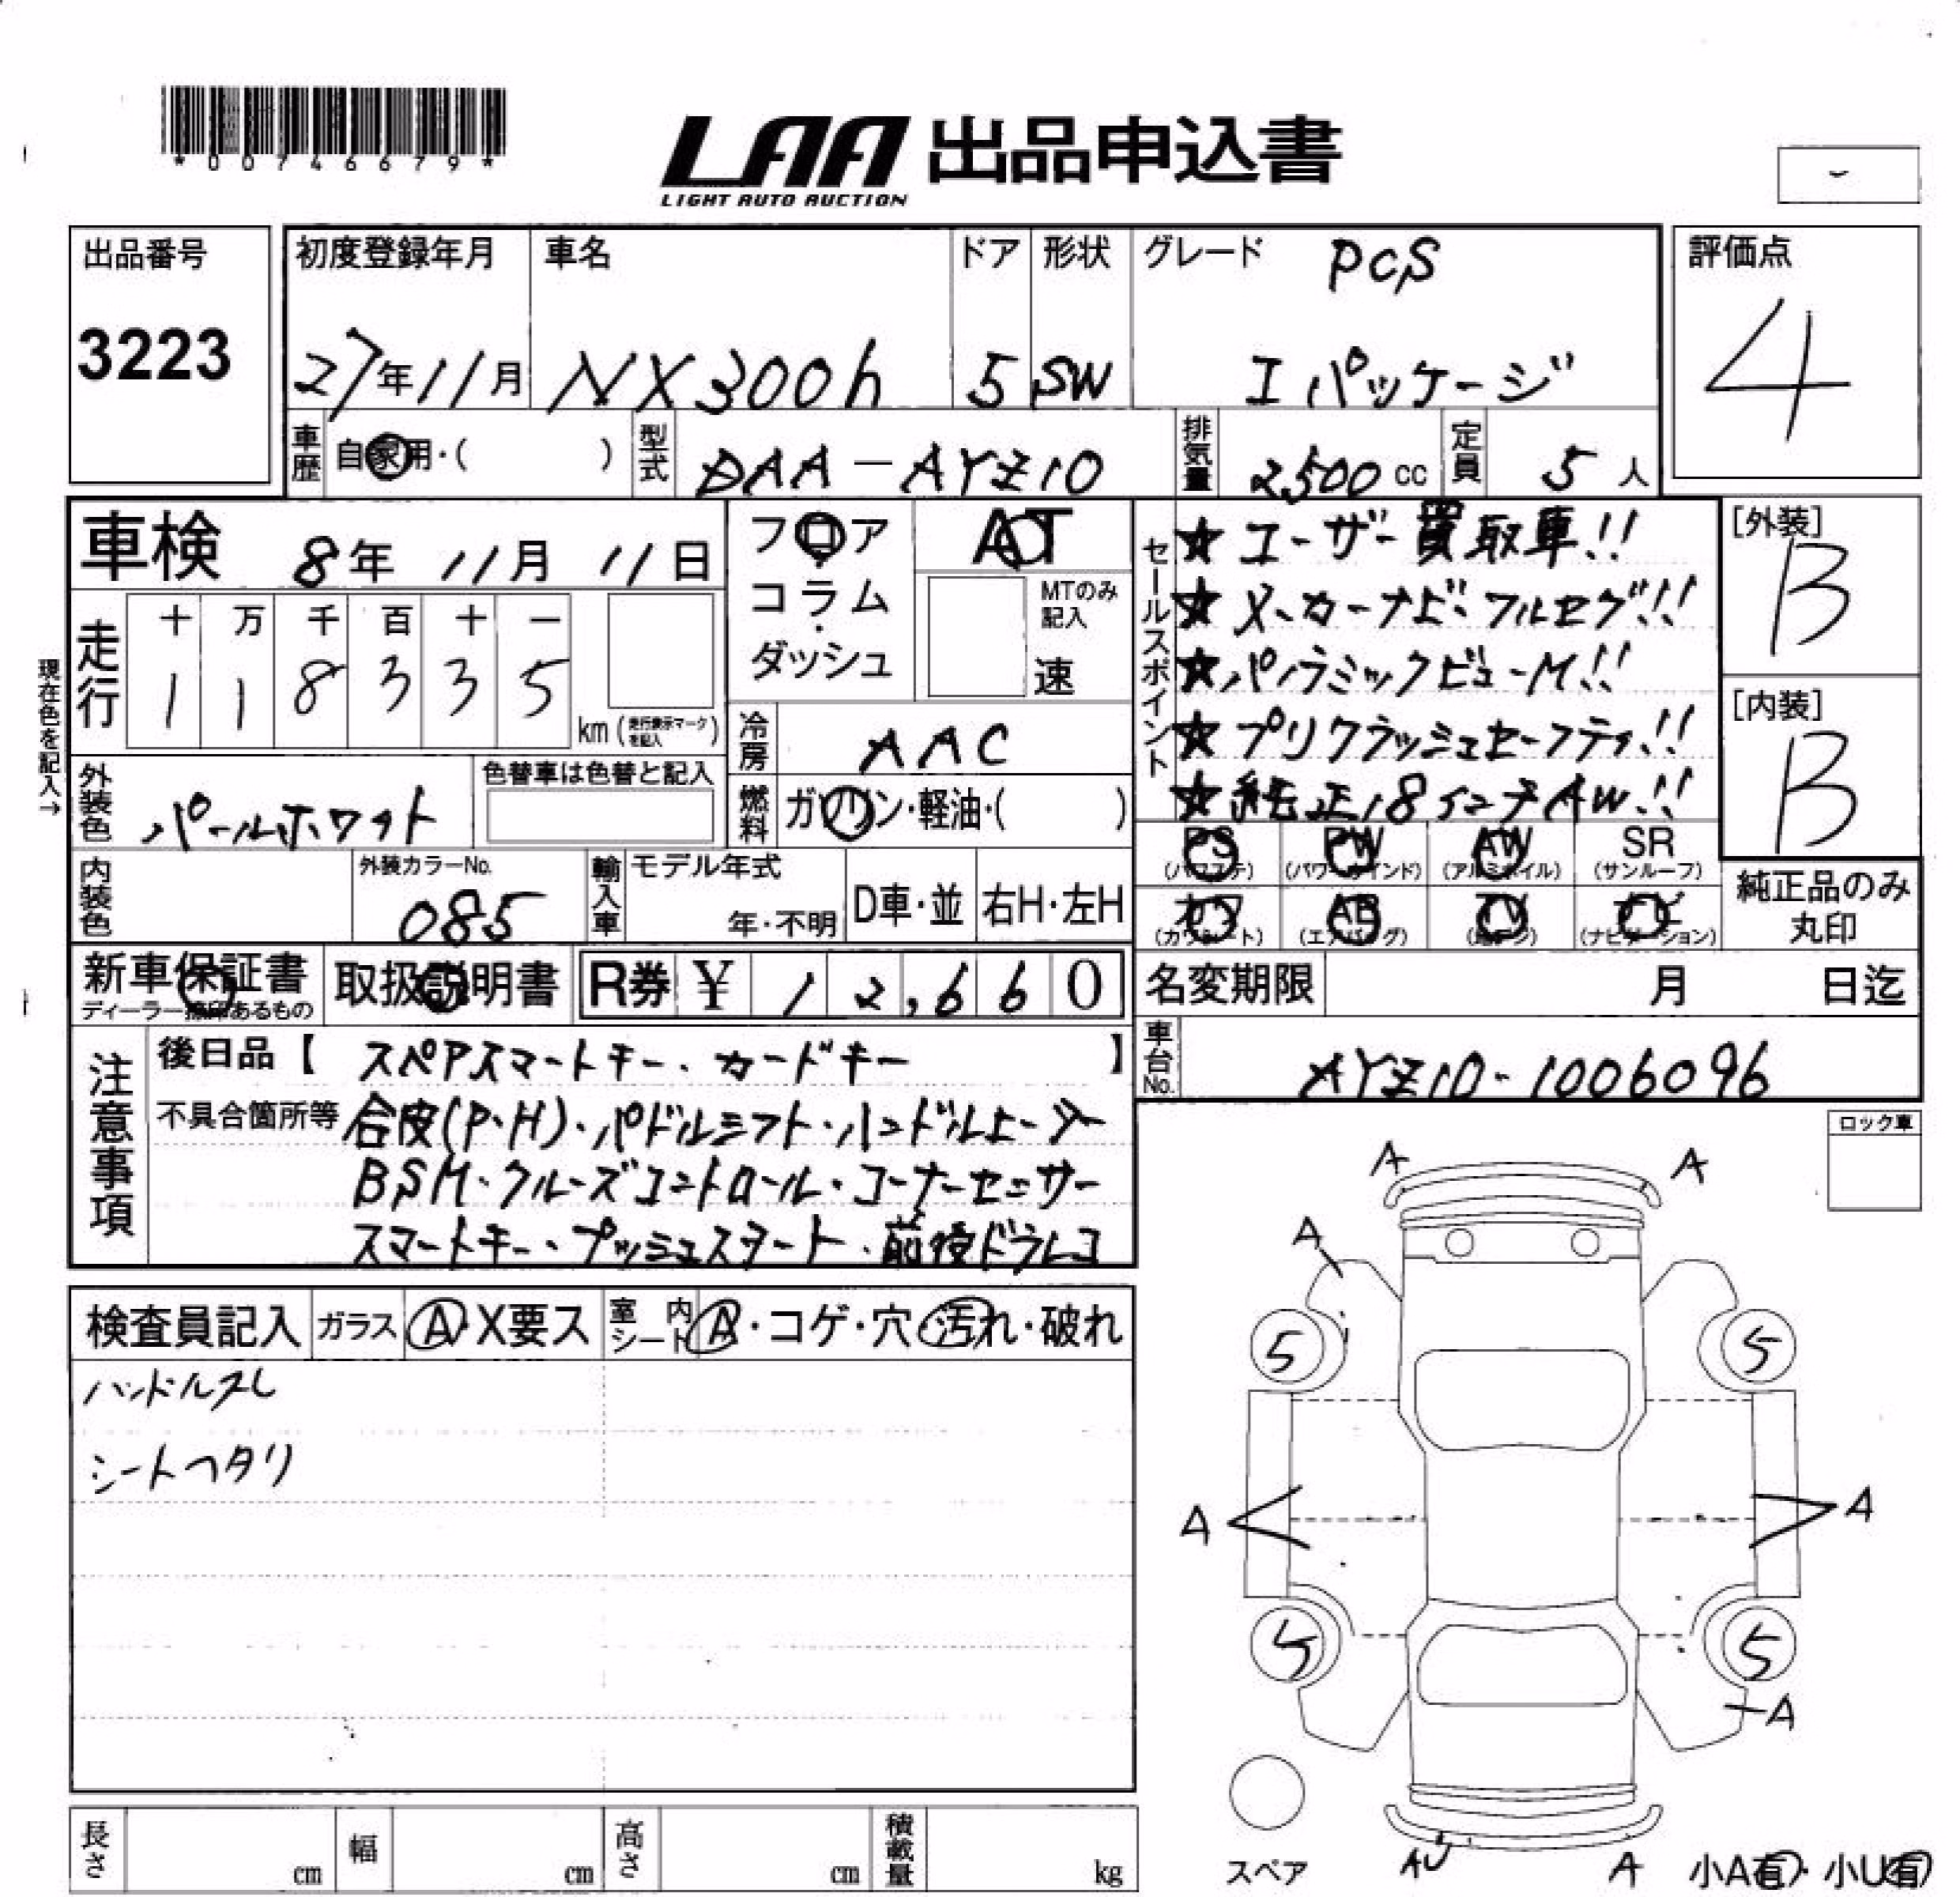 *00746679*
LAA 出品申込書
LIGHT AUTO AUCTION
出品番号
3223
初度登録年月
27年11月
車名
NX300h
ドア
5
形状
SW
グレード PCS
I パッケージ
評価点
4
車歴 自家用・( )
型式 DAA-AYZ10
排気量 2500 cc
定員 5 人
車検 8年 11月 11日
フロア
コラム
・
ダッシュ
AT
MTのみ
記入
速
セールスポイント
★ユーザー買取車!!
★メーカーナビ・フルセグ!!
★パノラミックビューM!!
★プリクラッシュセーフティ!!
★純正18インチAW!!
[外装]
B
[内装]
B
現在色を記入→
走行
十 万 千 百 十 一
1 1 8 3 3 5
km (走行表示マークを記入)
冷房 AAC
外装色 パールホワイト
色替車は色替と記入
燃料 ガソリン・軽油・( )
PS
(パワステ)
PW
(パワーウインド)
AW
(アルミホイル)
SR
(サンルーフ)
カワ
(カワシート)
AB
(エアバッグ)
TV
(地デジ)
ナビ
(ナビゲーション)
純正品のみ
丸印
内装色
外装カラーNo.
085
輸入車
モデル年式
年・不明
D車・並
右H・左H
新車保証書
ディーラー捺印あるもの
取扱説明書
R券 ¥ 12,660
名変期限 月 日迄
車台No. AYZ10-1006096
注意事項
後日品【 スペアスマートキー・カードキー 】
不具合箇所等 合皮(P・H)・パドルシフト・ハンドルヒーター
BSM・クルーズコントロール・コーナーセンサー
スマートキー・プッシュスタート・前後ドラレコ
ロック車
検査員記入
ガラス A・X要ス
室内シート A・コゲ・穴・汚れ・破れ
ハンドルスレ
シートヘタリ
A A
A
5 5
A A
5 5
A
スペア
AU A
小A有・小U有
長さ cm
幅 cm
高さ cm
積載量 kg